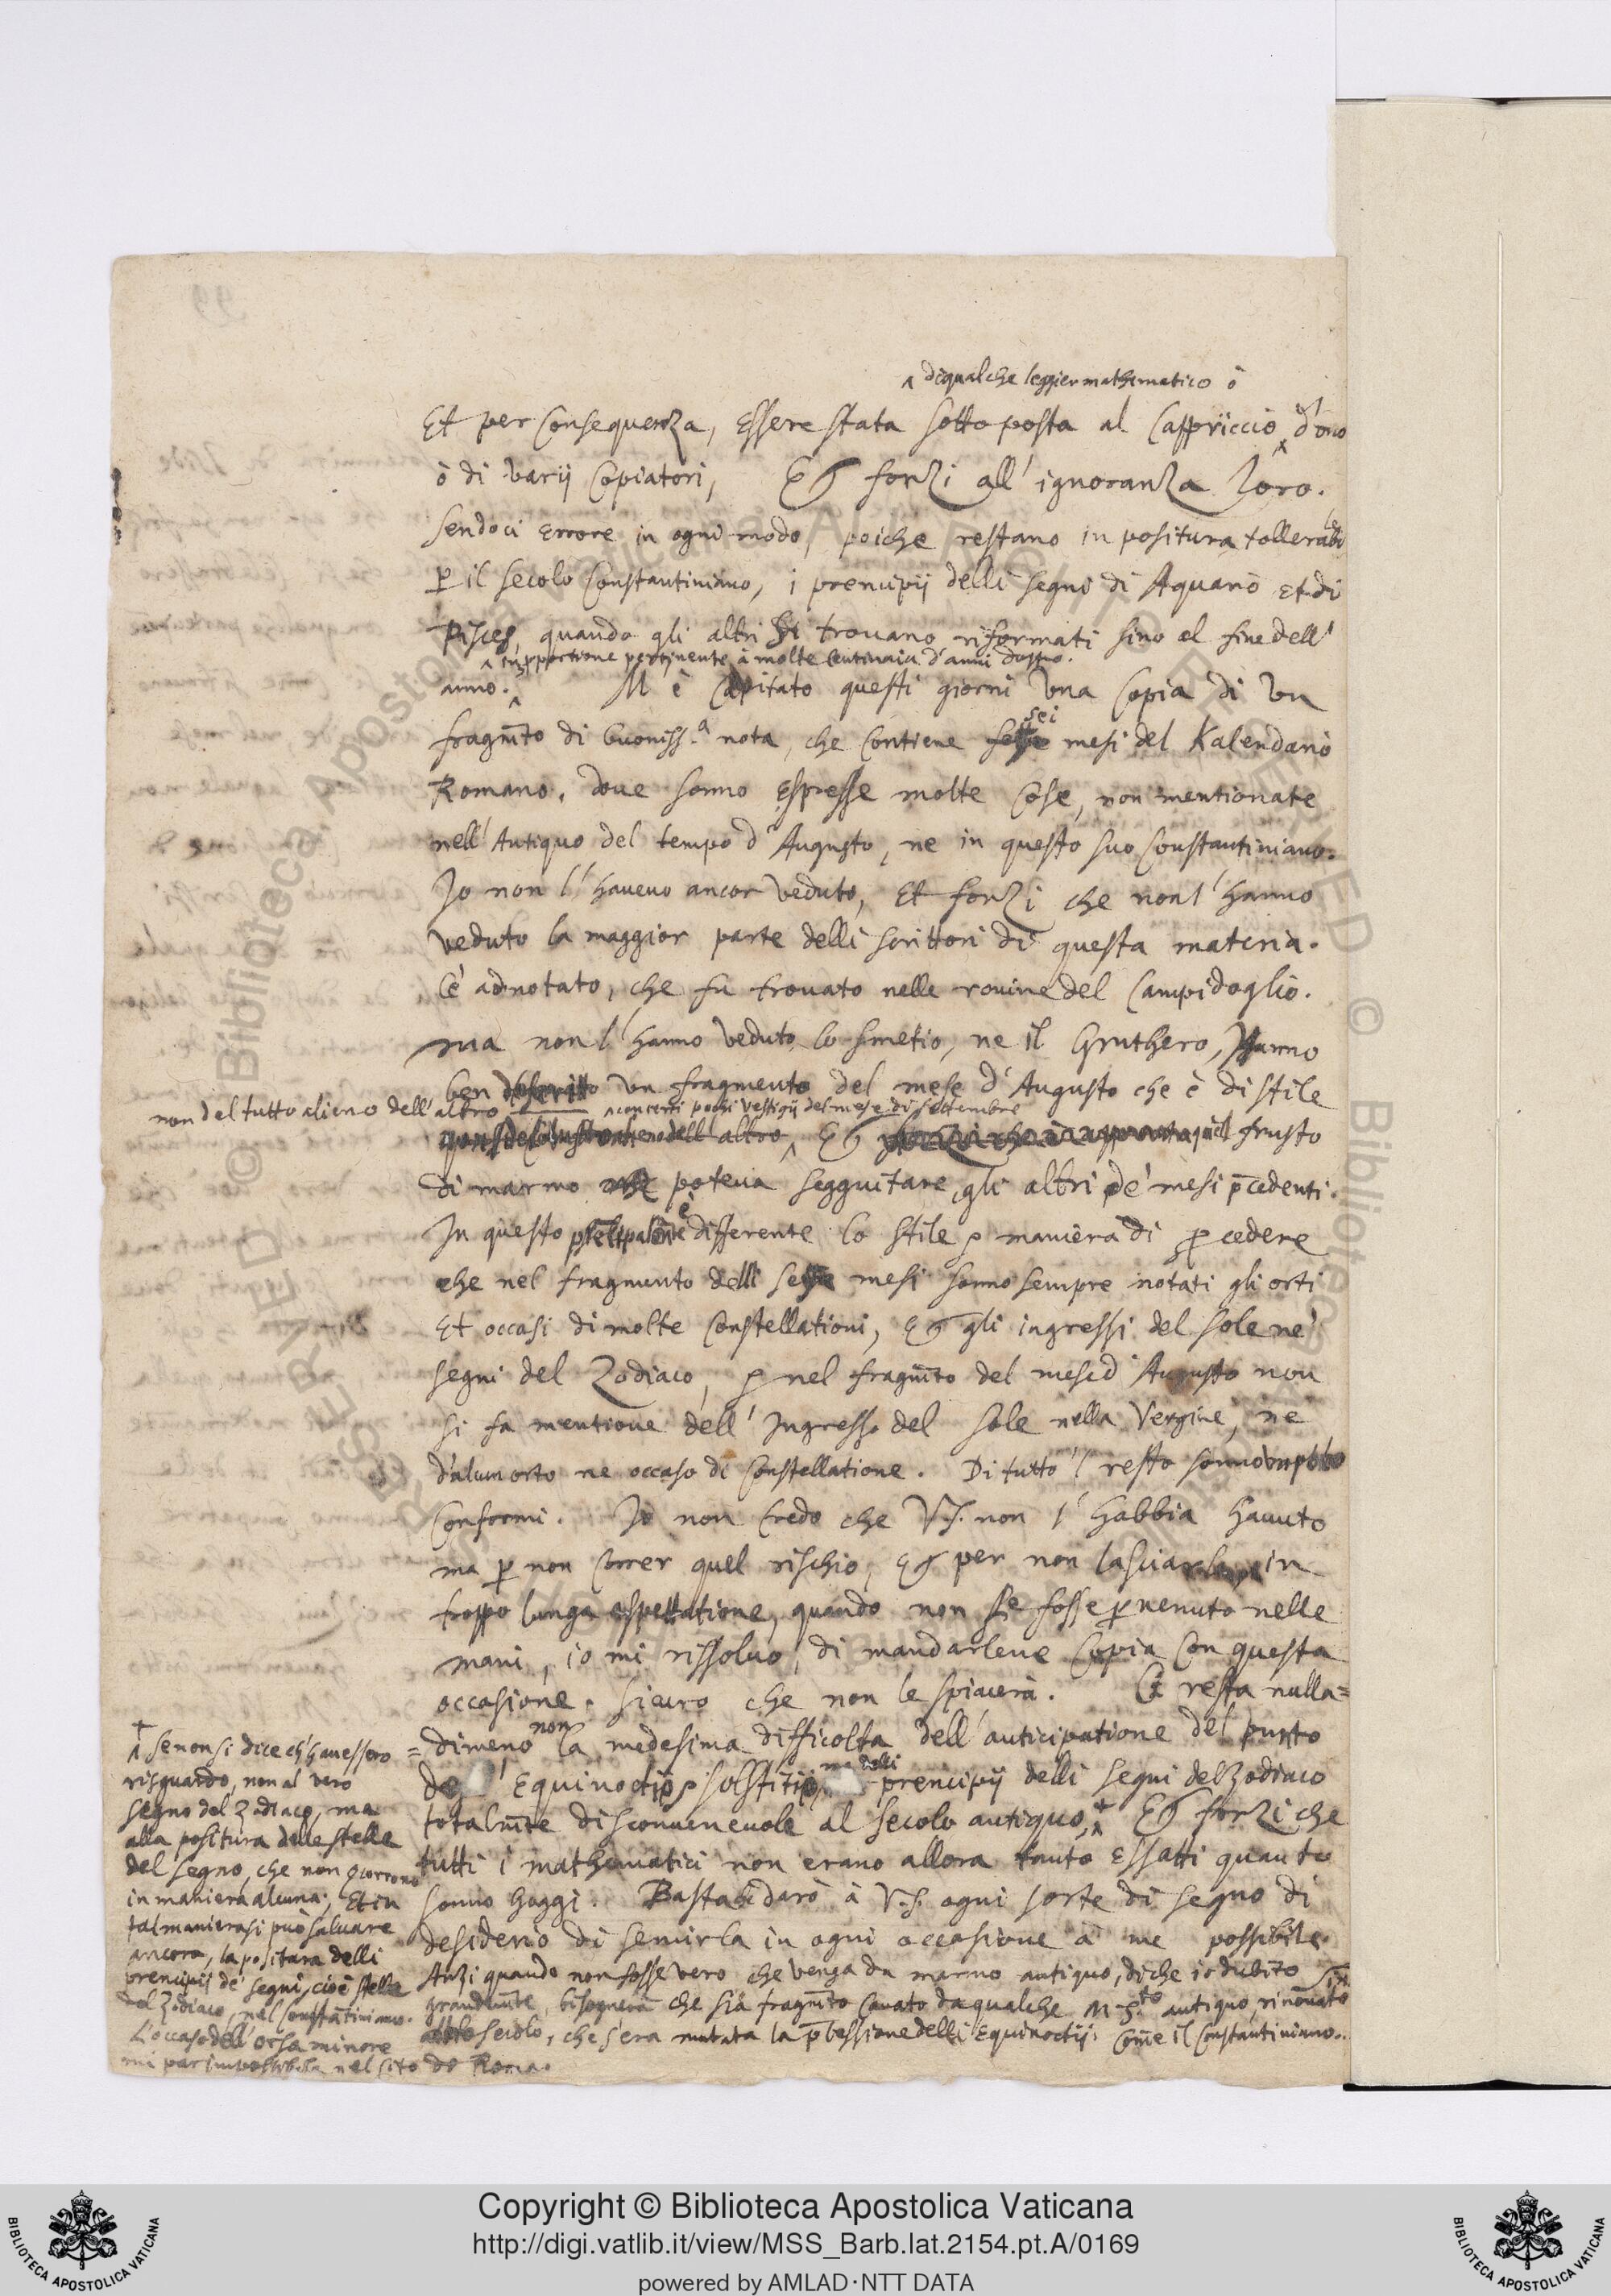 ^ di qualche leggier mathematico ò
Et per Consequenza, Essere stata sottoposta al Cappriccio ^ d'uno
ò di varij Copiatori, Et forzi all' ignoranza loro.
sendoci Errore in ogni modo, poiche restano in positura tollerabile
p il secolo Constantiniano, i prencipij delli segni di Aquario et di
Pisces, quando gli altri si trouano riformati sino al fine dell'
^ in proportione pertinente à molte Centinaia d'anni doppo.
anno. ^ M'è Capitato questi giorni Vna Copia di Vn
sei
fragmto di buoniss.a nota, che Contiene mesi del Kalendario
Romano, doue sonno Espresse molte Cose, non mentionate
nell' Antiquo del tempo d'Augusto, ne in questo suo Constantiniano.
Io non l'haueuo ancor Veduto, Et forzi che non l'hanno
Veduto la maggior parte delli scrittori di questa materia.
C'è adnotato, che fu trouato nelle rouine del Campidoglio.
ma non l'hanno Veduto lo Smetio, ne il Gruthero, Hanno
ben descritto Vn fragmento del mese d'Augusto che è di stile
non del tutto alieno dell' altro ^ con certi pochi vestigij del mese di settembre
^ Et frusto
di marmo poteua segguitare gli altri de' mesi pcedenti.
In questo è differente lo stile maniera di pcedere
che nel fragmento delli mesi sonno sempre notati gli orti
Et occasi di molte Constellationi, Et gli ingressi del sole ne'
segni del Zodiaco, nel fragmto del mese d'Augusto non
si fa mentione dell' Ingresso del sole nella Vergine, ne
d'alcun orto ne occaso di Constellatione. Di tutto 'l resto sonno
Conformi. Io non Credo che V.S. non l'habbia hauuto
ma p non Correr quel rischio, Et per non lasciar in
troppo lunga espettatione, quando non le fosse puenuto nelle
mani, io mi rissoluo, di mandarlene Copia Con questa
occasione. sicuro che non le spiacerà. Ci resta nulla=
non
=dimeno la medesima difficolta dell'anticipatione del punto
ma delli
Equinoctij solstitij, prencipij delli segni del Zodiaco
totalmte disconueneuole al secolo antiquo, ^ Et forzi che
tutti i mathematici non erano allora tanto Essatti quanto
sonno hoggi. Basta darò à V.S. ogni sorte di segno di
desiderio di seruirla in ogni occasione à me possibile.
Anzi quando non fosse vero che venga da marmo antiquo, di che io dubito
grandemte, bisognera che sia fragmto Cauato da qualche M.S.to antiquo, rinouato
secolo, che s'era mutata la pcessione delli Equinoctij. Come il Constantiniano.
^ se non si dice ch'hauessero
risguardo, non al vero
segno del Zodiaco, ma
alla positura delle stelle
del segno, che non
in maniera alcuna; Et in
tal maniera si può saluare
ancora, la positura delli
prencipij de' segni, cioè stelle
del Zodiaco, nel Constantiniano.
L'occaso dell'orsa minore
mi par impossibile nel sito de Roma.
Copyright © Biblioteca Apostolica Vaticana
http://digi.vatlib.it/view/MSS_Barb.lat.2154.pt.A/0169
powered by AMLAD·NTT DATA
BIBLIOTECA APOSTOLICA VATICANA
BIBLIOTECA APOSTOLICA VATICANA